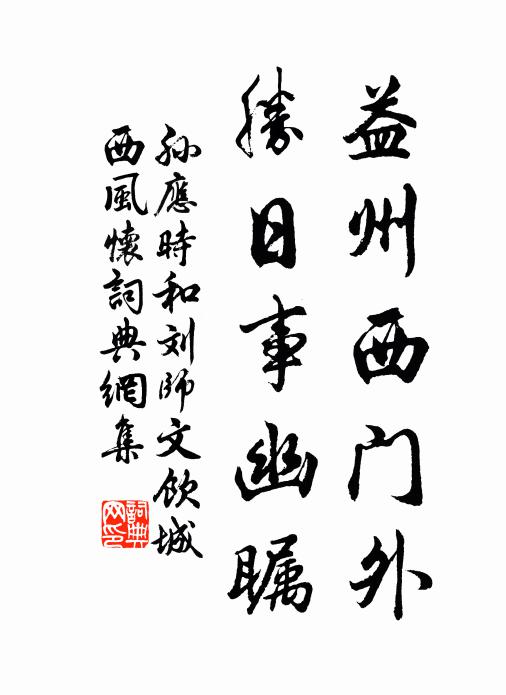 益州西门外
勝日事幽瞩
孙應時和刘師文飲城
西風懷詞典網集
詞典网印